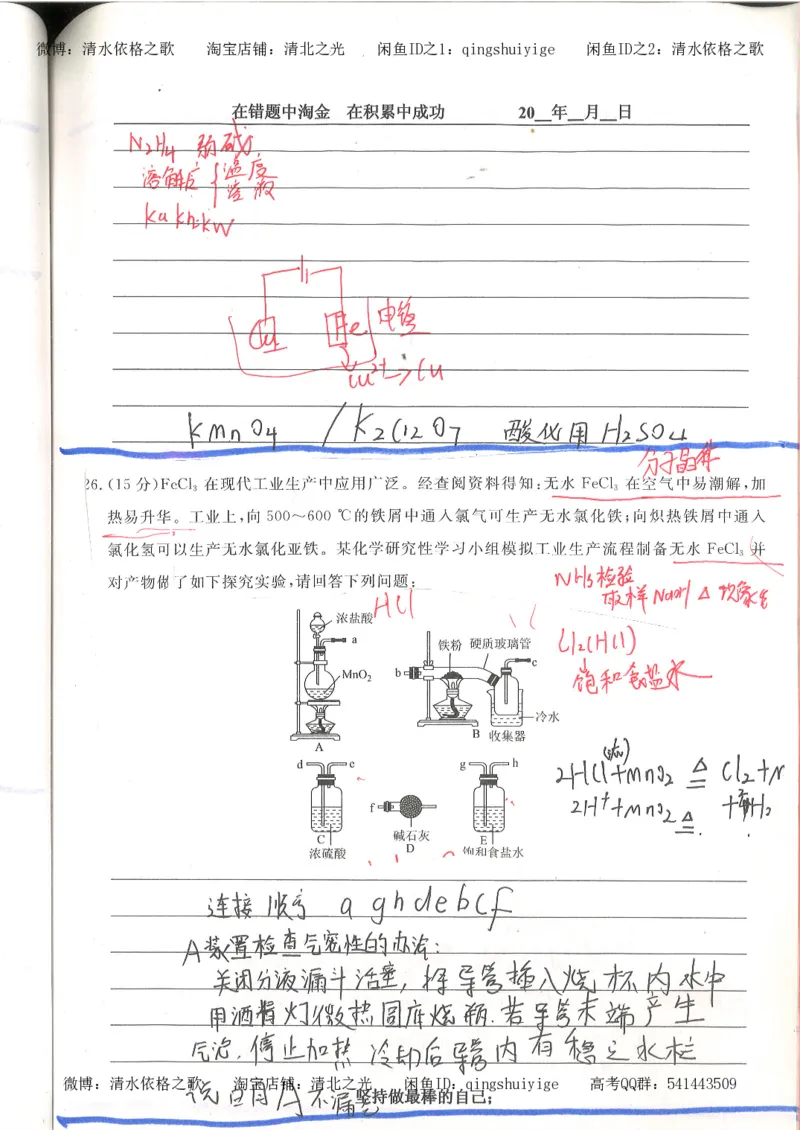 微博：清水依格之歌 淘宝店铺：清北之光 闲鱼ID之1：qingshuiyige 闲鱼ID之2：清水依格之歌
在错题中淘金 在积累中成功 20__年__月__日
N2H4 弱碱
溶解度 { 温度
溶液
Ka Kh=Kw
Cu Fe 电镀
Cu2+→Cu
KMnO4 / K2Cr2O7 酸化用 H2SO4
分子晶体
26.(15分)FeCl₃在现代工业生产中应用广泛。经查阅资料得知:无水 FeCl₃在空气中易潮解,加
热易升华。工业上,向500～600 ℃的铁屑中通入氯气可生产无水氯化铁;向炽热铁屑中通入
氯化氢可以生产无水氯化亚铁。某化学研究性学习小组模拟工业生产流程制备无水 FeCl₃并
对产物做了如下探究实验,请回答下列问题:
NH3检验
取样 NaOH △
HCl
浓盐酸
a
MnO₂
A
铁粉 硬质玻璃管
b
c
冷水
B 收集器
Cl2(HCl)
饱和食盐水
2HCl(浓)+MnO2 △ Cl2+
2H++MnO2 △
d e
f
g h
C
浓硫酸
碱石灰
D
E
饱和食盐水
连接顺序 a g h d e b c f
A装置检查气密性的办法:
关闭分液漏斗活塞，将导管插入烧杯内水中
用酒精灯微热圆底烧瓶.若导管末端产生
气泡，停止加热 冷却后导管内有稳定水柱
说明A不漏气
微博：清水依格之歌 淘宝店铺：清北之光 闲鱼ID：qingshuiyige 高考QQ群：541443509
坚持做最棒的自己;